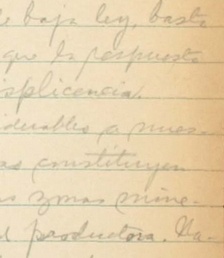 e baja ley, basta
que la respuesta
isplicencia.
iderables a nues-
as constituyen
s zonas mine-
l productora. Na-